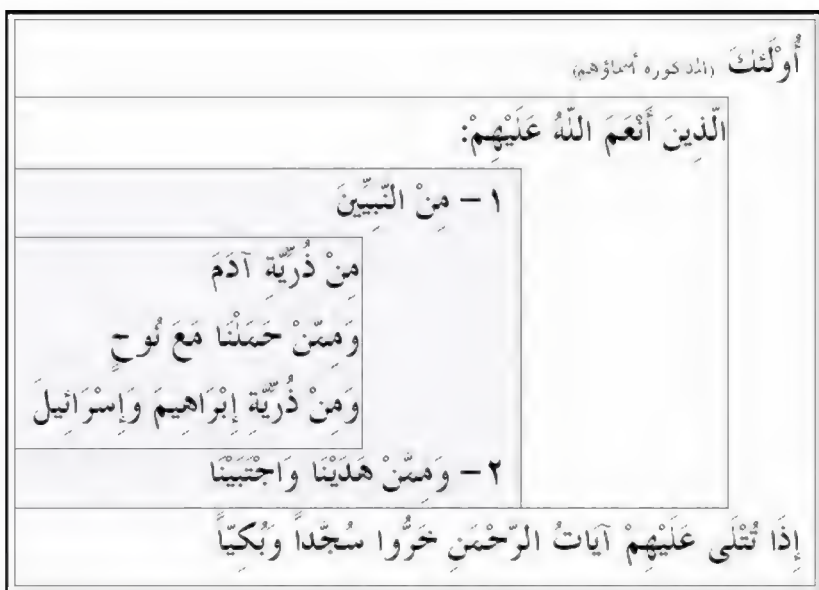 أُوْلَئِكَ (المذكوره أسماؤهم)
الَّذِينَ أَنْعَمَ اللَّهُ عَلَيْهِمْ:
١ – مِنْ النَّبِيِّينَ
مِنْ ذُرِّيَّةِ آدَمَ
وَمِمَّنْ حَمَلْنَا مَعَ نُوحٍ
وَمِنْ ذُرِّيَّةِ إِبْرَاهِيمَ وَإِسْرَائِيلَ
٢ – وَمِمَّنْ هَدَيْنَا وَاجْتَبَيْنَا
إِذَا تُتْلَى عَلَيْهِمْ آيَاتُ الرَّحْمَنِ خَرُّوا سُجَّداً وَبُكِيّاً